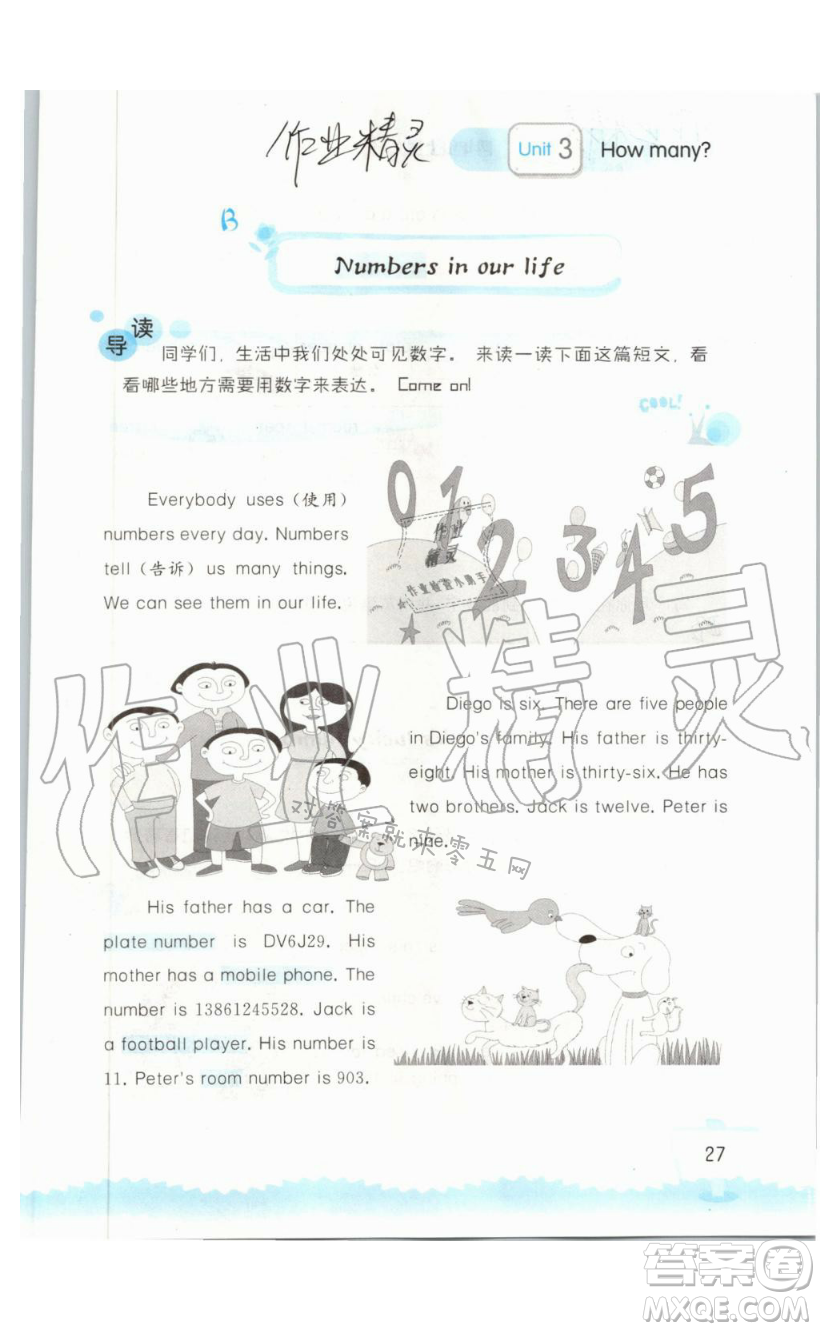 作业精灵
Unit 3 How many?
B
Numbers in our life
导读
同学们，生活中我们处处可见数字。来读一读下面这篇短文，看
看哪些地方需要用数字来表达。Come on!
COOL!
Everybody uses（使用）
numbers every day. Numbers
tell（告诉）us many things.
We can see them in our life.
0 1 2 3 4 5
作业
精灵
作业检查小帮手
作业精灵
Diego is six. There are five people
in Diego's family. His father is thirty-
eight. His mother is thirty-six. He has
two brothers. Jack is twelve. Peter is
nine.
对答案就来零五网
His father has a car. The
plate number is DV6J29. His
mother has a mobile phone. The
number is 13861245528. Jack is
a football player. His number is
11. Peter's room number is 903.
27
答案卷
MXQE.COM